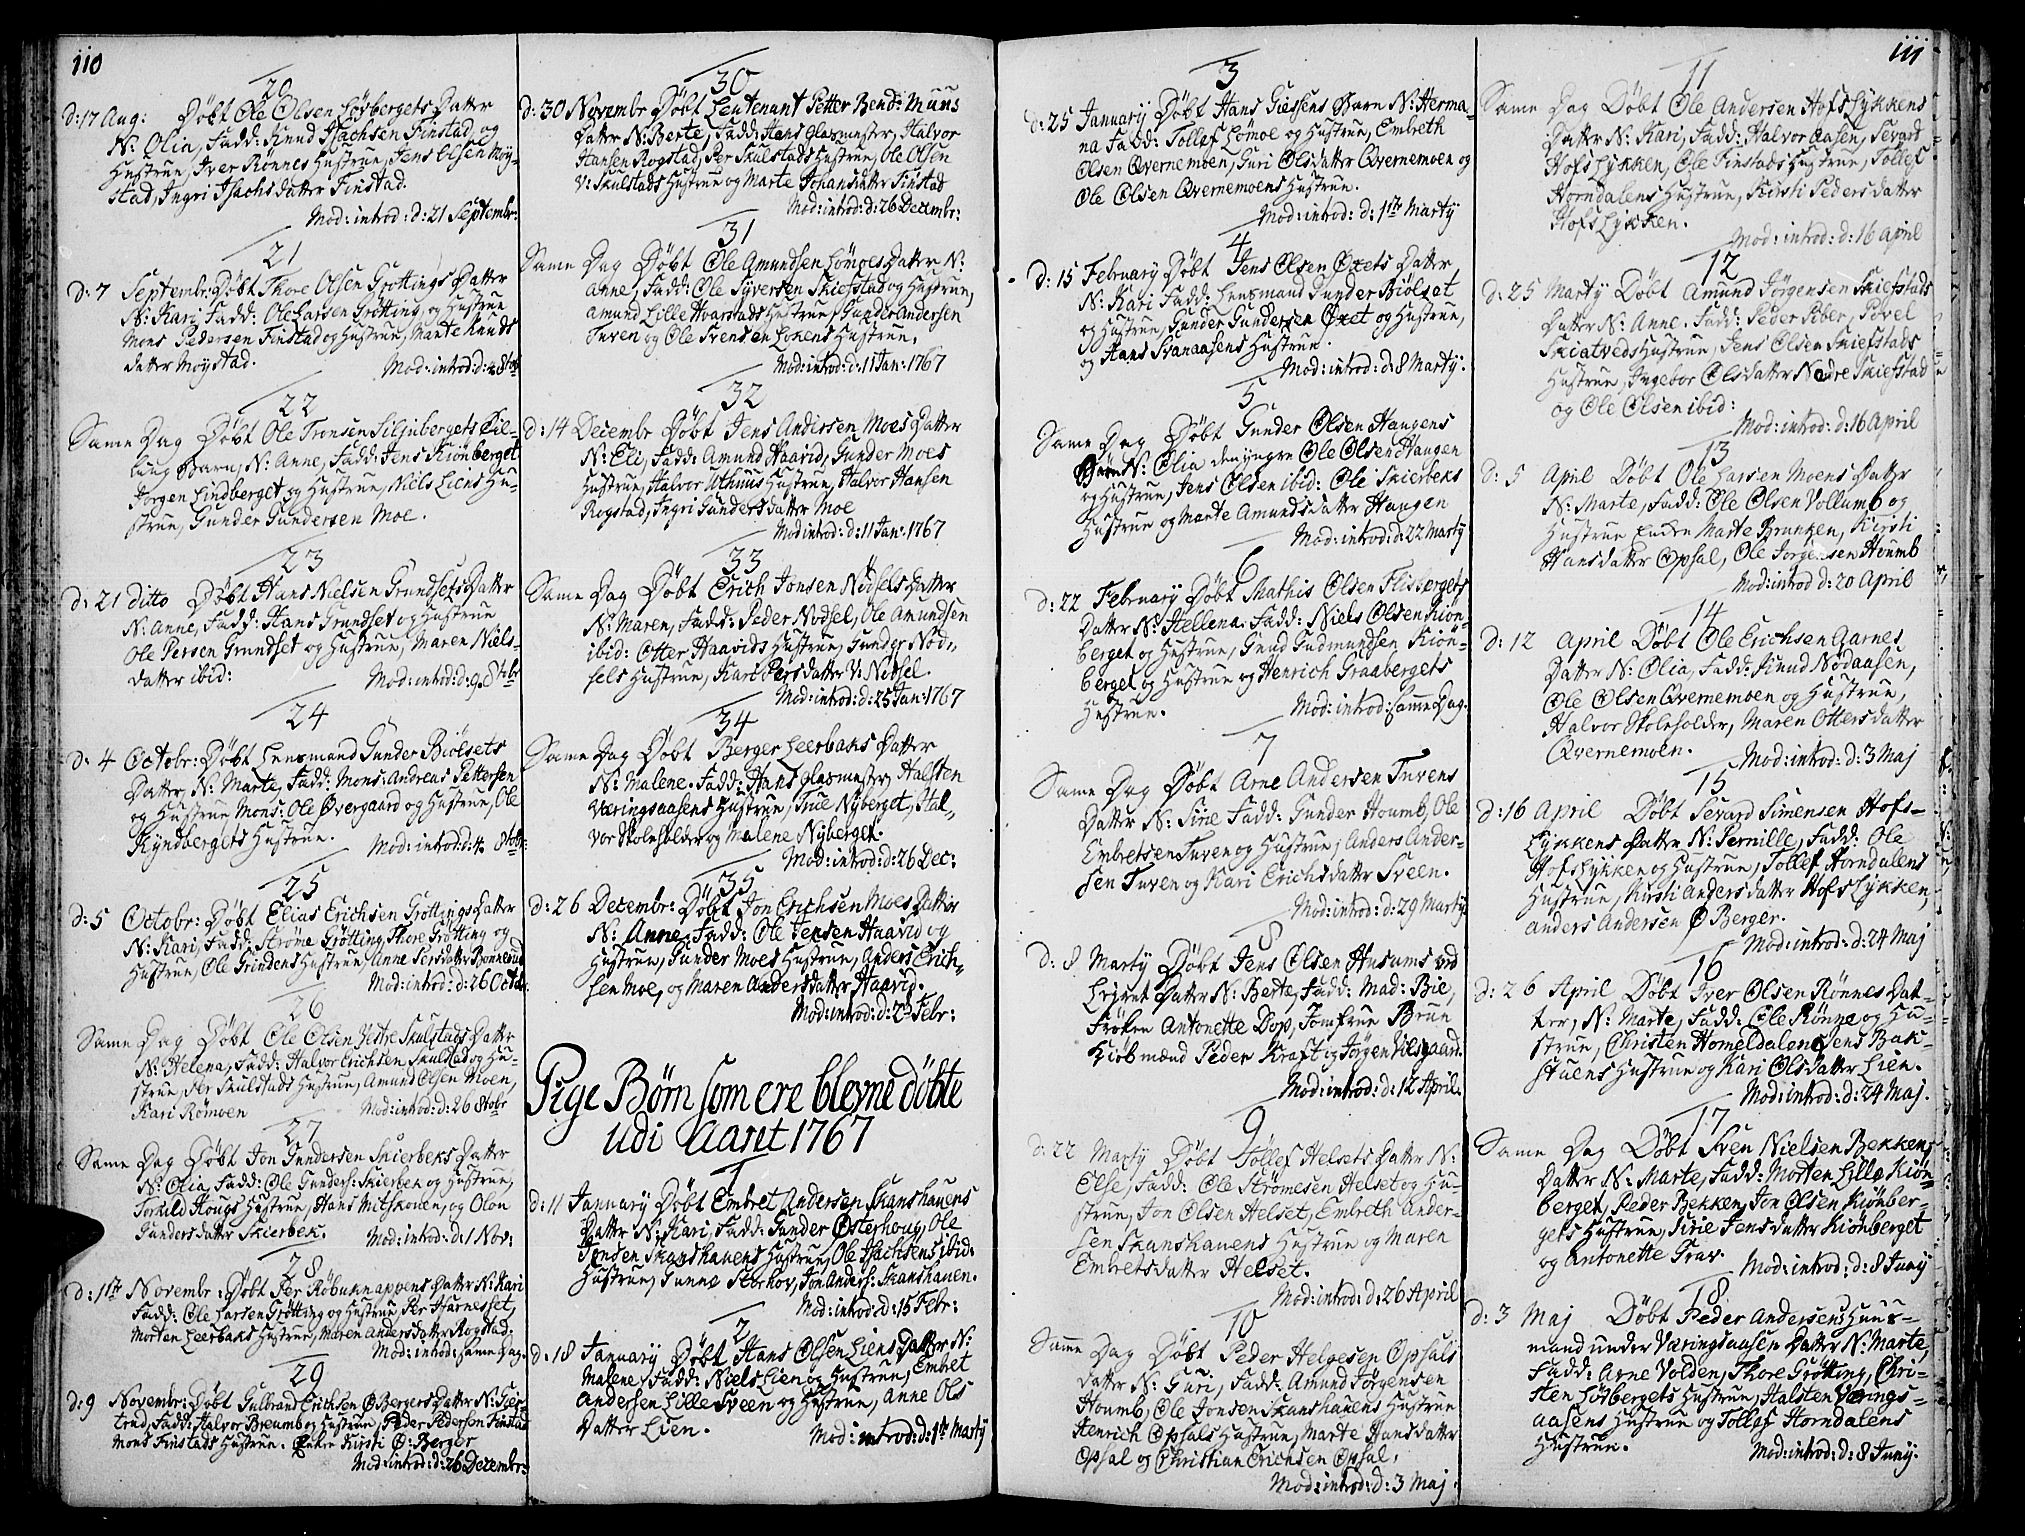 110
20
d: 17 Aug: Døbt Ole Olsen Løvbergets Datter
N: Olia, Fadd: Knud Isachsen Finstad og
Hustrue, Iver Rønnes Hustrue, Jens Olsen Møy-
stad, Ingri Isachsdatter Finstad.
Mod: introd: d: 21 Septembr:
21
d: 7 Septembr: Døbt Thore Olsen Grøttings Datter
N: Kari, Fadd: Ole Larsen Grøtting og Hustrue
Mons Pedersen Finstad og Hustrue, Marte Knuds
datter Møystad.
Mod: introd: d: 8tobr
22
Same Dag Døbt Ole Tronsen Siljubergets Tvil-
ling Barn, N: Anne, Fadd: Jens Kiønberget
Jørgen Lindberget og Hustrue, Niels Liens Hu-
strue, Gunder Gundersen Moe.
23
d: 21 ditto Døbt Hans Nielsen Grundsets Datter
N: Anne, Fadd: Hans Grundset og Hustrue
Ole Persen Grundset og Hustrue, Maren Niels-
datter ibid:
Mod: introd: d: 9. 8tobr
24
d: 4 Octobr: Døbt Lensmand Gunder Biølsets
Datter, N: Marte, Fadd: Mons: Andreas Pettersen
og Hustrue Mons: Ole Øvergaard og Hustrue, Ole
Kyndbergets Hustrue.
Mod: introd: d: 4 8tobr:
25
d: 5 Octobr: Døbt Elias Erichsen Grøttings Datter
N: Kari, Fadd: Strøme Grøtting, Thore Grøtting og
Hustrue, Ole Grindens Hustrue, Anne Persdatter
Mod: introd: d: 26 Octobr
26
Same Dag Døbt Ole Olsen Vestre Skulstads Datter
N: Helena, Fadd: Halvor Erichsen Skulstad og Hu-
strue, Per Skulstads Hustrue, Amund Olsen Moen,
Kari Rømoen
Mod: introd: d: 26 8tobr
27
Same Dag Døbt Jon Gundersen Skierbeks Datter
N: Olia, Fadd: Ole Gunders: Skierbek og Hustrue,
Torkild Hougs Hustrue, Hans Mitskouen, og Olou
Gundersdatter Skierbek.
Mod: introd: d: 1 Nov:
28
d: 1ste Novembr: Døbt Per Røbuknappens Datter N: Kari
Fadd: Ole Larsen Grøtting og Hustrue, Per Harnesset,
Morten Leerbaks Hustrue, Maren Andersdatter Rogstad.
Mod: introd: same Dag.
29
d: 9 Novembr: Døbt Gulbrand Erichsen Ø Bergers Datter N: Gier-
trud, Fadd: Halvor Broumb og Hustrue, Peder Pedersen Finstad
Mons Finstads Hustrue. Enken Kirsti Ø: Berger
Mod: introd: d: 26 Dezembr:
30
d: 30 Novembr Døbt Leutenant Petter Bend: Muns
Datter N: Berte, Fadd: Hans Glasmester, Halvor
Hansen Rogstad, Per Skulstads Hustrue, Ole Olsen
V: Skulstads Hustrue og Marte Johansdatter Finstad
Mod: introd: d: 26 Decembr:
31
Same Dag Døbt Ole Amundsen Lømoes Datter N:
Anne, Fadd: Ole Syversen Skiefstad og Hustrue,
Amund Lille Hvarstads Hustrue, Gunder Andersen
Tuven og Ole Svensen Løkens Hustrue.
Mod: introd: d: 11 Jan: 1767
32
d: 14 Decembr Døbt Jens Andersen Moes Datter
N: Eli, Fadd: Amund Haavid, Gunder Moes
Hustrue, Halvor Uthuus Hustrue, Halvor Hansen
Rogstad, Ingri Gundersdatter Moe
Mod: introd: d: 11 Jan: 1767
33
Same Dag Døbt Erich Jonsen Nødsels Datter
N: Maren, Fadd: Peder Nødsel, Ole Amundsen
ibid: Otter Haavids Hustrue, Gunder Nød-
sels Hustrue, Kari Persdatter V: Nødsel.
Mod: introd: d: 25 Jan: 1767
34
Same Dag Døbt Berger Leerbaks Datter
N: Malene. Fadd: Hans Glasmester, Halsten
Væringsaasens Hustrue, True Nyberget, Hal-
vor Skoleholder og Malene Nyberget.
Mod: introd: d: 26 Dec:
35
d: 26 Decembr: Døbt Jon Erichsen Moes Datter
N: Anne. Fadd: Ole Jensen Haavid og
Hustrue, Gunder Moes Hustrue, Anders Erich-
sen Moe, og Maren Andersdatter Haavid.
Mod: introd: d: 23 Febr:
Pige Børn som ere blevne døbte
udi Aaret 1767
1
d: 11 January Døbt Embret Andersen Skanshauens
Datter N: Kari, Fadd: Gunder Østerhoug, Ole
Jonsen Skanshauens Hustrue, Ole Isachsens ibid:
Hustrue, Sunna Storhov, Jon Anders: Skanshauen.
Mod: introd: d: 15 Febr:
2
d: 18 January Døbt Hans Olsen Liens Datter N:
Malene, Fadd: Niels Lien og Hustrue, Embret
Andersen Lille Sveen og Hustrue, Anne Ols
Datter Lien.
Mod: introd: d: 1ste Marty
111
3
d: 25 January Døbt Hans Giessens Barn N: Herma-
na Fadd: Tollef Lømoe og Hustrue, Embreth
Olsen Qvernemoen, Guri Olsdatter Qvernemoen og
Ole Olsen Qvernemoens Hustrue.
Mod: introd: d: 1ste Marty
4
d: 15 February Døbt Jens Olsen Øxets Datter
N: Kari Fadd: Lensmand Gunder Biølset
og Hustrue, Gunder Gundersen Øxet og Hustrue,
og Hans Svanaasens Hustrue.
Mod: introd: d: 8 Marty.
5
Same Dag Døbt Gunder Olsen Haugens
Barn N: Olia den yngre Ole Olsen Haugen
og Hustrue, Jens Olsen ibid: Ole Skierbeks
Hustrue og Marte Amundsdatter Haugen
Mod: introd: d: 22 Marty
6
d: 22 February Døbt Mathis Olsen Flisbergets
Datter N: Hellena. Fadd: Niels Olsen Kiøn-
berget og Hustrue, Gunder Gudmundsen Kiøn-
berget og Hustrue og Henrich Graabergets
Hustrue.
Mod: introd: same Dag.
7
Same Dag Døbt Arne Andersen Tuvens
Datter N: Sirie Fadd: Gunder Houmb, Ole
Embretsen Tuven og Hustrue, Anders Ander-
sen Tuven og Kari Erichsdatter Sveen.
Mod: introd: d: 29 Marty
8
d: 8 Marty Døbt Jens Olsen Husums ved
Leyret Datter N: Berte, Fadd: Mad: Bie,
Frøken Antonette Dop, Jomfrue Brun
Kiøbmænd Peder Kraft og Jørgen Vilsgaard.
Mod: introd: d: 12 April.
9
d: 22 Marty Døbt Tollef Helsets Datter N:
Else, Fadd: Ole Strømesen Helset og Hu-
strue, Jon Olsen Helset, Embreth Ander-
sen Skanshauens Hustrue og Maren
Embretsdatter Helset.
Mod: introd: d: 26 April
10
Same Dag Døbt Peder Helgesen Opsals
Datter N: Guri, Fadd: Amund Jørgensen
Houmb, Ole Jonsen Skanshauens Hustrue
Henrich Opsals Hustrue, Marte Hansdatter
Opsal og Christian Erichsen Opsal.
Mod: introd: d: 3 Maj.
11
Same Dag Døbt Ole Andersen Hofslykkens
Datter N: Kari, Fadd: Halvor Aasen, Sevard
Hofslykken, Ole Finstads Hustrue, Tollef
Horndalens Hustrue, Kirsti Pedersdatter
Hofslykken.
Mod: introd: d: 16 April
12
d: 25 Marty Døbt Amund Jørgensen Skiefstads
Datter N: Anne. Fadd: Peder Piber, Povel
Skiatveds Hustrue, Jens Olsen Skiefstads
Hustrue, Ingebor Olsdatter Nedre Skiefstad
og Ole Olsen ibid:
Mod: introd: d: 16 April
13
d: 5 April Døbt Ole Larsen Moens Datter
N: Marte, Fadd: Ole Olsen Vollumb og
Hustrue Enken Marte Brunken, Kirsti
Hansdatter Opsal, Ole Jørgensen Houmb
Mod: introd d: 20 April
14
d: 12 April Døbt Ole Erichsen Aarnes
Datter N: Olia, Fadd: Knud Nødaasen,
Ole Olsen Qvernemoen og Hustrue,
Halvor Skoleholder, Maren Ottersdatter
Qvernemoen.
Mod: introd: d: 3 Maj
15
d: 16 April Døbt Sevard Simensen Hofs-
lykkens Datter N: Pernille, Fadd: Ole
Hofslykken og Hustrue, Tollef Horndalens
Hustrue, Kirsti Andersdatter Hofslykken,
Anders Andersen Ø Berger.
Mod: introd: d: 24 Maj
16
d: 26 April Døbt Iver Olsen Rønnes Dat-
ter, N: Marte, Fadd: Ole Rønne og Hu-
strue, Christen Homeldalen, Jens Bak-
stuens Hustrue og Kari Olsdatter Lien.
Mod: introd: d: 24 Maj.
17
Same Dag Døbt Sven Nielsen Bekkens
Datter N: Marte, Fadd: Morten Lille Kiøn-
berget, Peder Bekken, Jon Olsen Kiønber-
gets Hustrue, Sirie Jensdatter Kiønberget
og Antonette Grav.
Mod: introd: d: 8 Juny
18
d: 3 Maj Døbt Peder Andersens Huus-
mand under Væringsaasen Datter N: Marte,
Fadd: Arne Volden, Thore Grøtting, Chri-
sten Løvbergets Hustrue, Halsten Værings-
aasens Hustrue og Tollef Horndalens
Hustrue.
Mod: introd: d: 8 Juny.